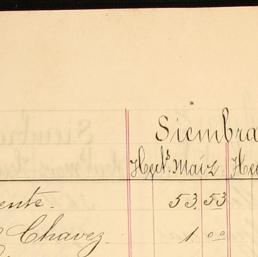 Siembra
Hect.s Maíz Hec
ente. 53. 53
Chavez 1. 00